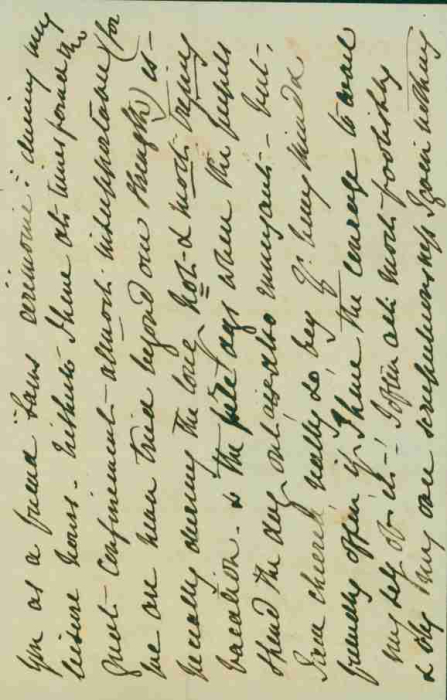 you as a friend "sans cérémonie" during my
leisure hours - hitherto I have at times found the
great confinement almost insupportable (for
we are never tried beyond our strength) es-
pecially during the long, hot & most trying
vacation. & the fête days when the pupils
spend the day out, are also - but,
I am cheered really to beg of being kind &
friendly offer if I have the courage to avail
myself of it -! I often act most foolishly
& by my own scrupulousness I gain nothing